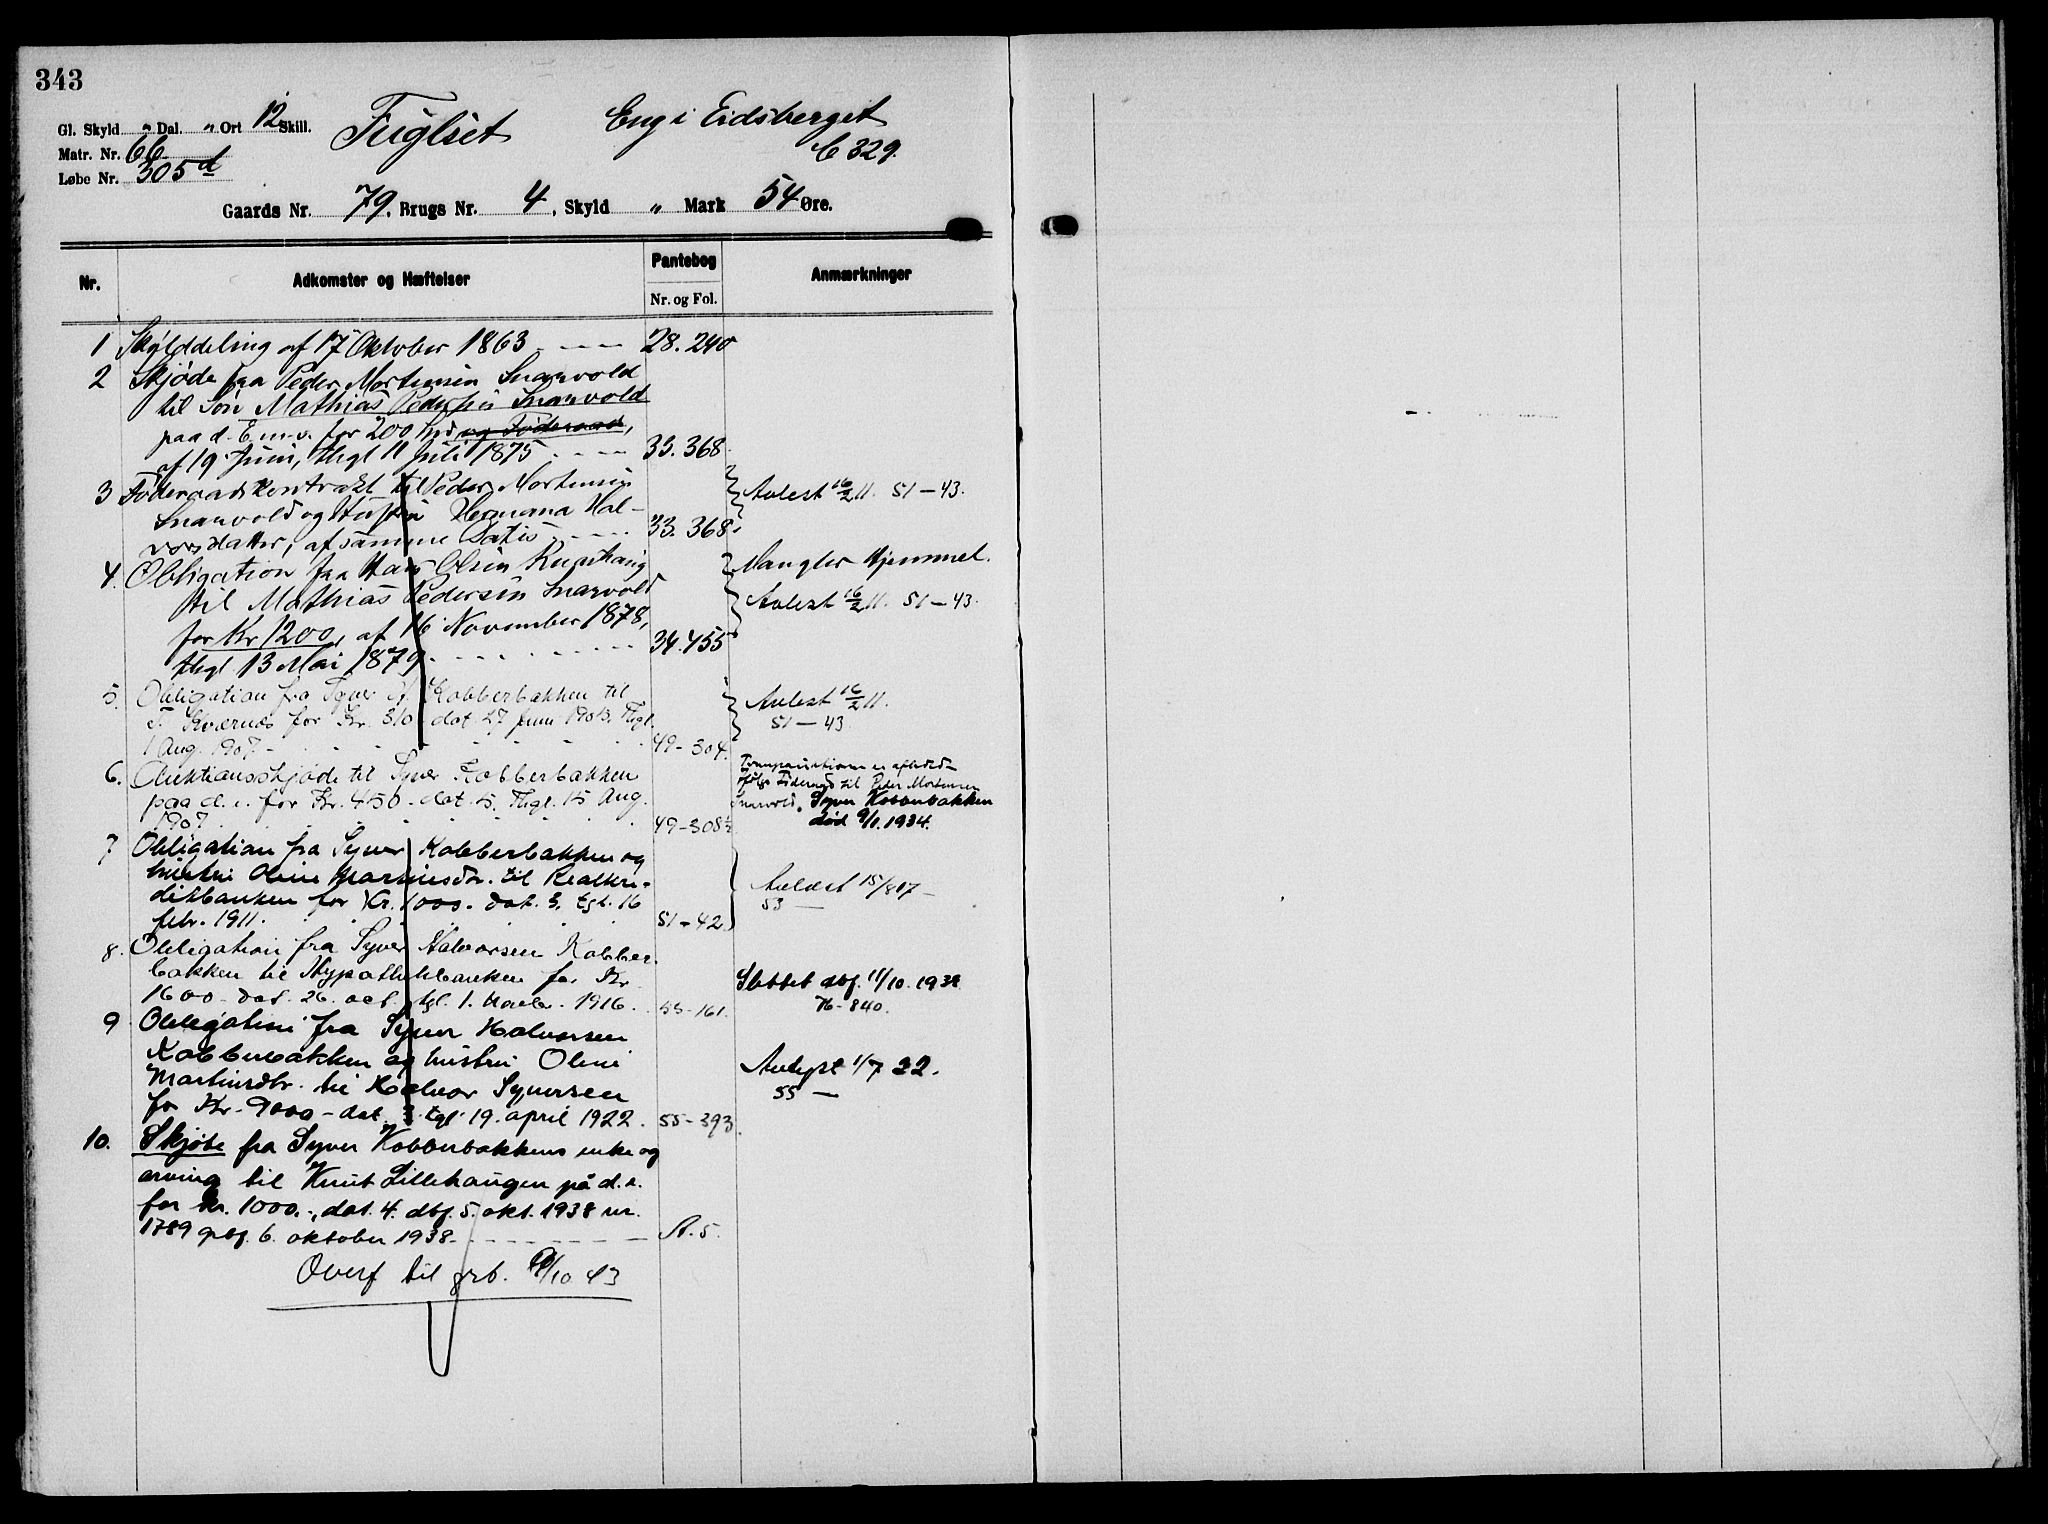 343
Gl. Skyld " Dal. " Ort 12 Skill.
Fuglset
Eng i Eidsberget
C 329.
Matr. Nr. 66
Løbe Nr. 305 d
Gaards Nr. 79, Brugs Nr. 4, Skyld " Mark 54 Øre.
Nr.
Adkomster og Hæftelser
Pantebog
Nr. og Fol.
Anmærkninger
1 Skylddeling af 17 Oktober 1863 - - - - 28. 240
2 Skjøde fra Peder Mortensen Snarvold
til Søn Mathias Pedersen Snarvold
paa d. E m. v. for 200 Spd og Føderaad,
af 19 Juni, thgl 11 Juli 1875 - - - - 33. 368.
3 Føderaadskontrakt til Peder Mortensen
Snarvold og Hustru Hermana Hal-
vorsdatter, af samme Datis - - - - 33. 368.
Avlest 16/2 11. 51 - 43.
4. Obligation fra Hans Olsen
til Mathias Pedersen Snarvold
for Kr 1200, af 16 November 1878,
thgl 13 Mai 1879 - - - - 34. 455
Mangler Hjemmel.
Avlest 16/2 11. 51 - 43.
5. Obligation fra Syver Kobberbakken til
Kværnes for Kr. 310 dat 27 juni 1903. Thgl.
1 Aug. 1907. - 49 - 304.
Avlest 16/2 11.
51 - 43
6. Auktionsskjøde til Syver Kobberbakken
paa d. e. for Kr. 450. dat. 5. Thgl. 15 Aug.
1907 49 - 308½
Føderaad til Peder Mortensen
Snarvold. Syver Kobberbakken
død 9/1. 1934.
7 Obligation fra Syver Kobberbakken og
hustru Oline Martinsdtr. til Realkre-
ditbanken for Kr. 1000. dat. 3. tgl. 16
febr. 1911. 51 - 42.
Avlæst 15/8 17 -
53 —
8. Obligation fra Syver Halvorsen Kobber-
bakken til Hypothekbanken for Kr
1600 - dat. 26. oct. tgl. 1. Novbr. 1916. 53 - 161.
Slettet dbf. 11/10. 1938
76 - 840.
9 Obligation fra Syver Halvorsen
Kobberbakken og hustru Oline
Martinsdtr. til Halvor Syversen
for Kr. 9000 - dat. 3. tgl. 19. april 1922. 55 - 393.
Avlyst 1/7 22.
55 —
10. Skjøte fra Syver Kobberbakkens enke og
arving til Knut Lillehaugen på d. e.
for kr. 1000.-, dat. 4. dbf. 5. okt. 1938 nr.
1789 gbf. 6. oktober 1938 - - - - A. 5.
Overf til grb. /10 43